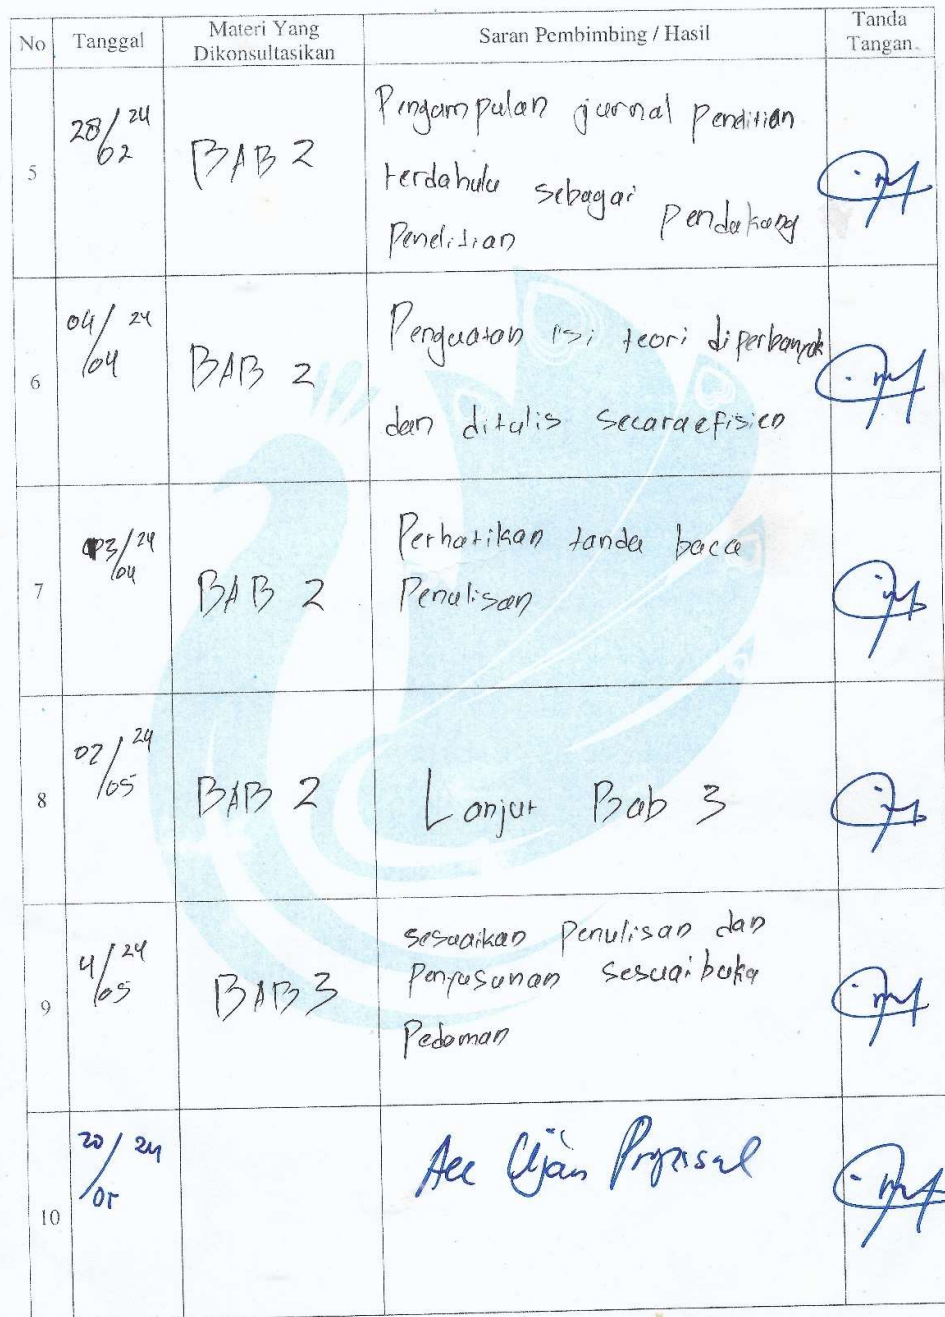 No Tanggal Materi Yang Dikonsultasikan Saran Pembimbing / Hasil Tanda Tangan
5 28/02 24 BAB 2 Pengumpulan jurnal penelitian
terdahulu sebagai pendukung
Penelitian
6 04/04 24 BAB 2 Penguatan isi teori diperbanyak
dan ditulis secara efisien
7 03/04 24 BAB 2 Perhatikan tanda baca
Penulisan
8 02/05 24 BAB 2 Lanjut Bab 3
9 4/05 24 BAB 3 sesuaikan Penulisan dan
Penyusunan sesuai buku
Pedoman
10 20/05 24 Acc Ujian Proposal